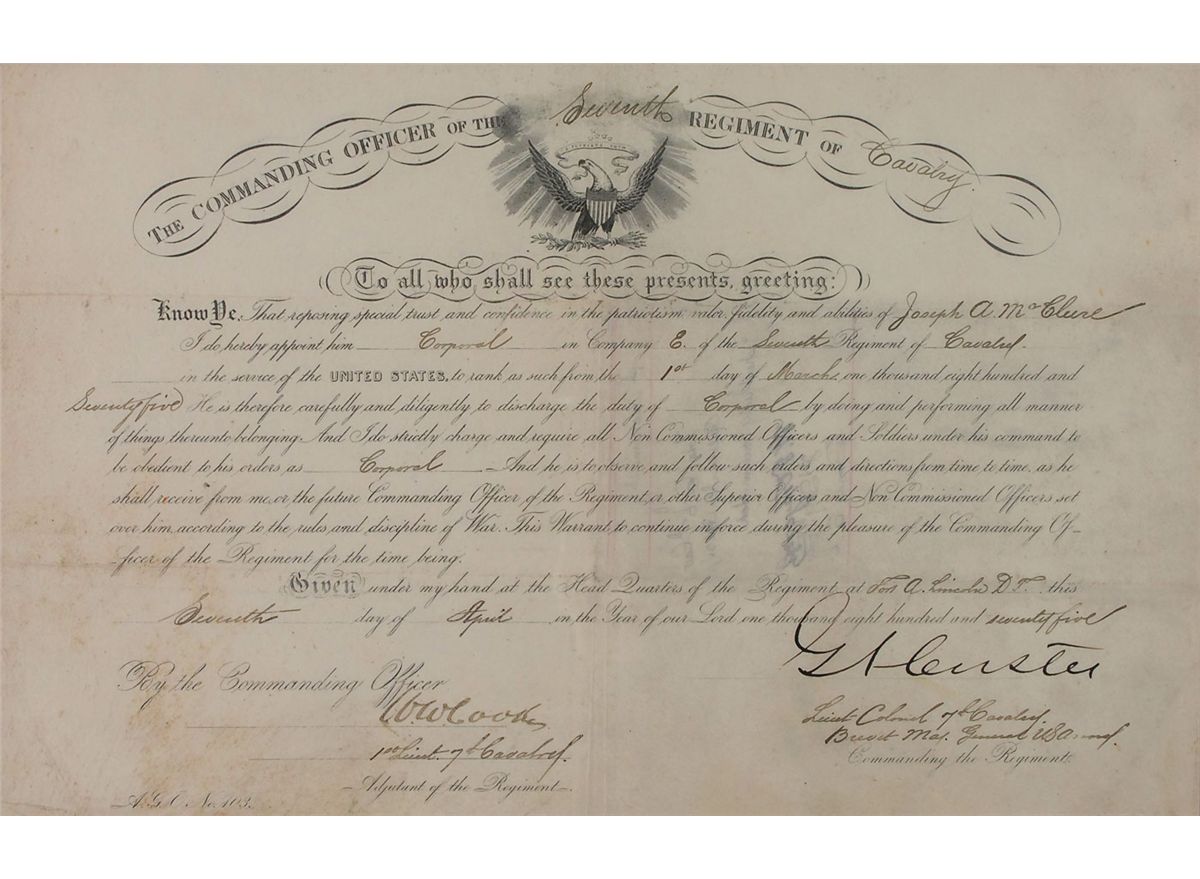 THE COMMANDING OFFICER OF THE Seventh REGIMENT OF Cavalry.
To all who shall see these presents, greeting:
Know Ye, That reposing special trust and confidence in the patriotism, valor, fidelity and abilities of Joseph A. McClure
I do hereby appoint him Corporal in Company E. of the Seventh Regiment of Cavalry.
in the service of the UNITED STATES, to rank as such from the 1st day of March, one thousand eight hundred and
Seventy five He is therefore carefully and diligently to discharge the duty of Corporal by doing and performing all manner
of things thereunto belonging. And I do strictly charge and require all Non Commissioned Officers and Soldiers under his command to
be obedient to his orders as Corporal And he is to observe and follow such orders and directions from time to time, as he
shall receive from me, or the future Commanding Officer of the Regiment, or other Superior Officers and Non Commissioned Officers set
over him, according to the rules and discipline of War. This Warrant to continue in force during the pleasure of the Commanding Of-
-ficer of the Regiment for the time being.
Given under my hand at the Head Quarters of the Regiment at Fort A. Lincoln D.T. this
Seventh day of April in the Year of our Lord one thousand eight hundred and seventy five
GACuster
By the Commanding Officer
WWCooke
Lieut Colonel 7th Cavalry.
Brevet Maj. General USArmy.
1st Lieut. 7th Cavalry.
Commanding the Regiment.
Adjutant of the Regiment.
A.G.O. No. 103.